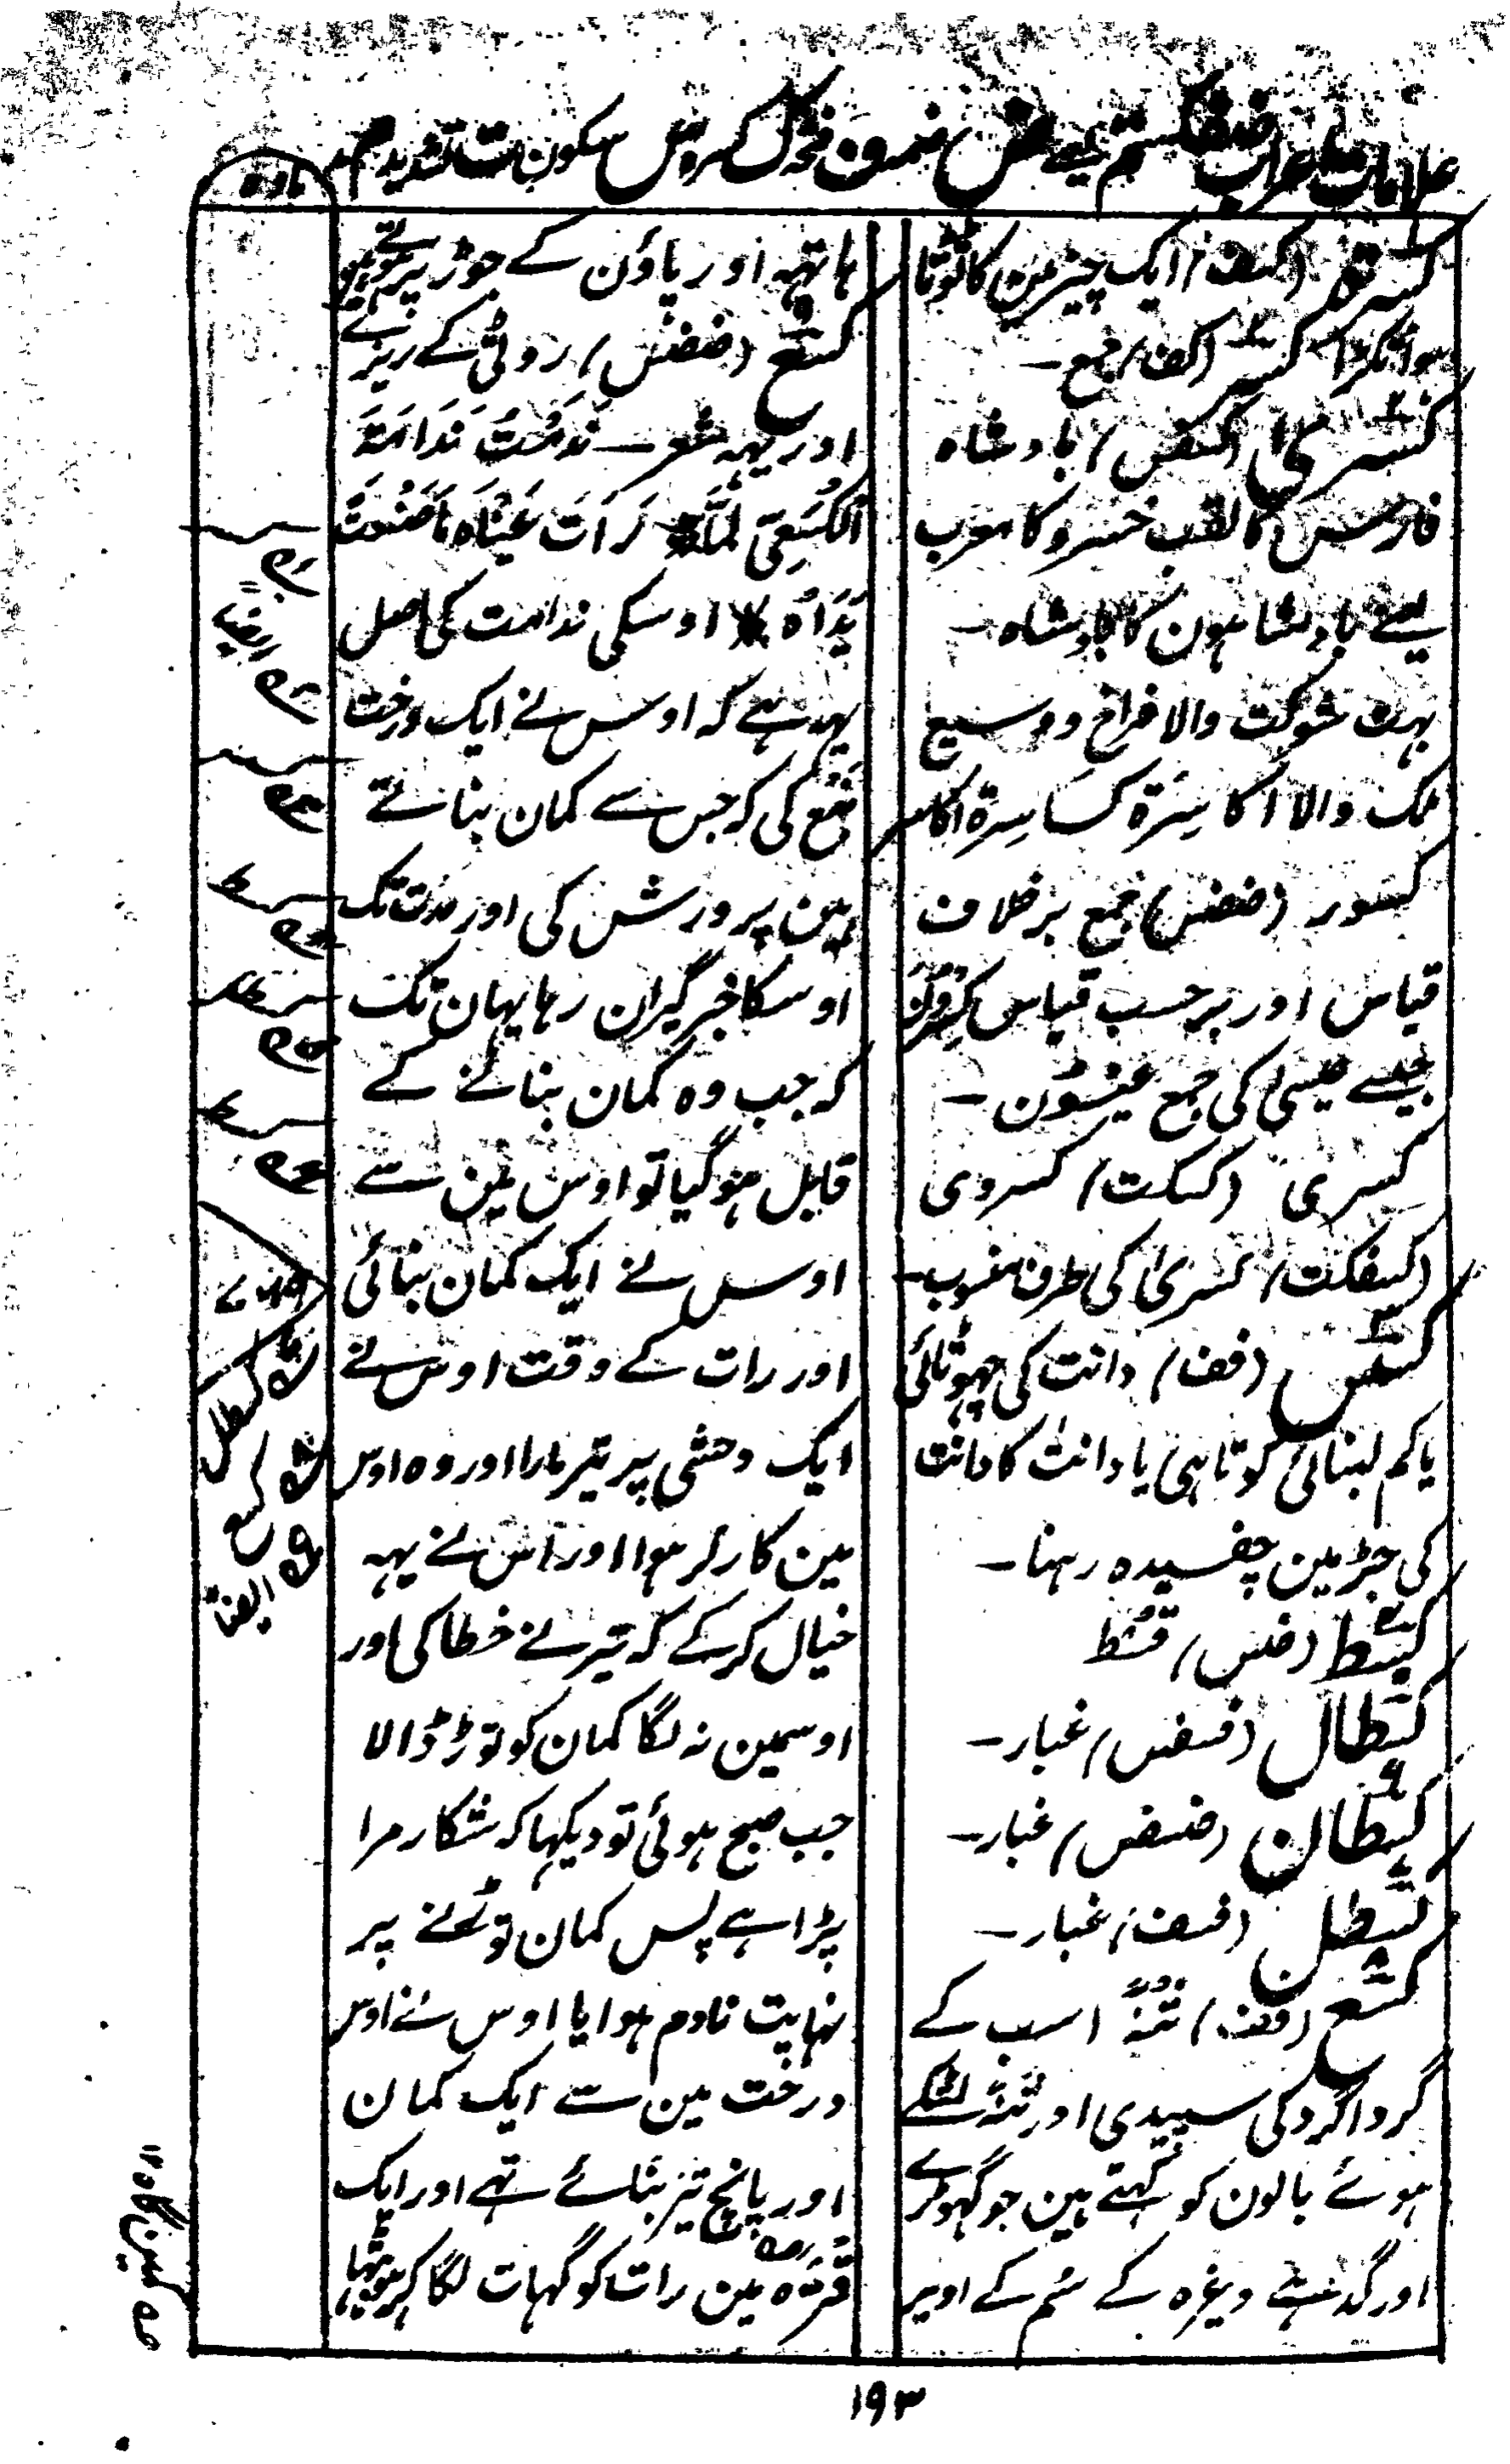 علامات اعراب ضفکستم یعنے ض ضمہ ف فتحہ ک کسرہ س سکون ت تشدید م
مادہ
کسرۃ (کسف) ایک چیز مین کا ٹوٹا
ہوا ٹکڑا کسر (کف) جمع ۔
کسریٰ (کسفس) بادشاہ
فارس کا لقب خسرو کا معرب
یعنے بادشاہون کا بادشاہ ۔
بہت شوکت والا فراخ و وسیع
ملک والا اکاسِرَۃ کساسِرۃ اکاسر
کسور (ضضس) جمع برخلاف
قیاس اور برحسب قیاس کِسرَوْنَ
جیسے عیسیٰ کی جمع عیسَوْن ۔
کسری (کسکت) کسروی
(کسفکت) کسریٰ کی طرف منسوب ۔
کسس (فف) دانت کی چہوٹائی
یا کم لبنائی کوتاہی یا دانت کا دانت
کی جڑ مین چفسیدہ رہنا ۔
کسط (ضس) قُسْط
کسطال (فسفس) غبار ۔
کسطان (ضسفس) غبار ۔
کسطل (فسف) غبار ۔
کسع (فف) ثُنَّۂ اسب کے
گرداگرد کی سپیدی اور ثُنّہ لٹکے
ہوئے بالون کو کہتے ہین جو گہوڑے
اور گدھے وغیرہ کے سُم کے اوپر
ہاتہہ اور پاؤن کے جوڑ پر ہوتے
کسع (ضضس) روٹی کے ریزے
اور یہہ شعر ۔ نَدِمْتُ نَدَامَۃَ
الْکُسَعِیِّ لَمَّا رَاَتْ عَیْنَاہُ مَا صَنَعَتْ
یَدَاہُ اوسکی ندامت کی اصل
یہہ ہے کہ اوس نے ایک درخت
نَبْع کی کہ جس سے کمان بناتے
ہین پرورش کی اور مدت تک
اوسکا خبرگیران رہا یہان تک
کہ جب وہ کمان بنانے کے
قابل ہو گیا تو اوس مین سے
اوس نے ایک کمان بنائی
اور رات کے وقت اوس نے
ایک وحشی پر تیر مارا اور وہ اوس
مین کارگر ہوا اور اس نے یہہ
خیال کرکے کہ تیر نے خطا کی اور
اوسمین نہ لگا کمان کو توڑ ڈالا
جب صبح ہوئی تو دیکہا کہ شکار مرا
پڑا ہے پس کمان توڑنے پر
نہایت نادم ہوا یا اوس نے اوس
درخت مین سے ایک کمان
اور پانچ تیر بنائے تہے اور ایک
قُتْرَہ مین رات کو گہات لگا کر بیٹہا
ایضاً
کسطل
کسع
ایضاً
۱۹۳